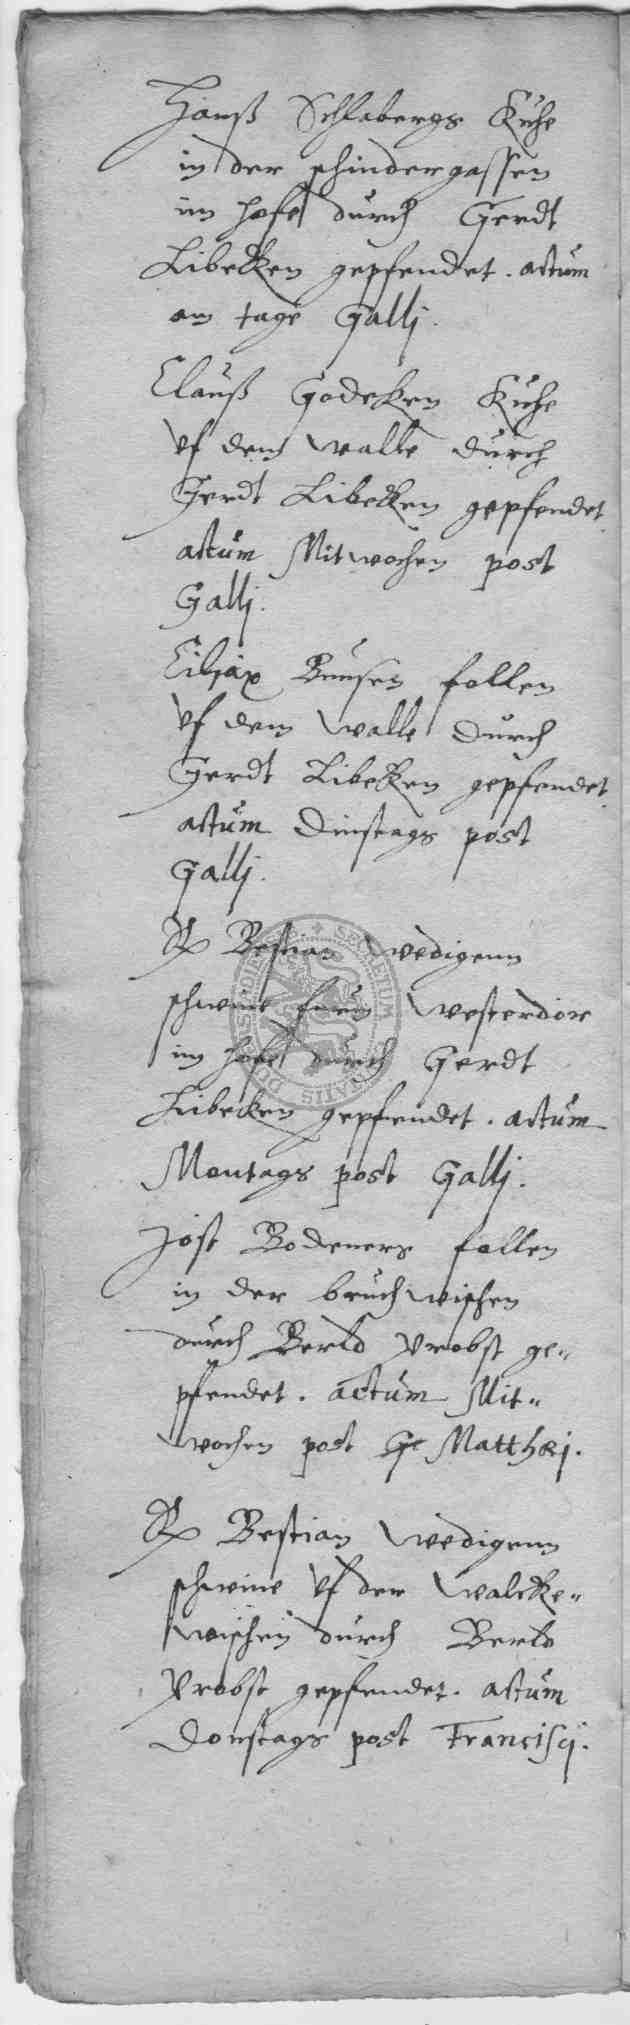 Hanß Schlabergs Kuhe
in der schindergassen
im hofe durch Gerdt
Libecken gepfendet. actum
am tage Gallj.
Clauß Godeken Kuhe
vf dem walle durch
Gerdt Libecken gepfendet
actum Mitwochen post
Gallj.
Ciliax follen
vf dem walle durch
Gerdt Libecken gepfendet
actum Dinstags post
Gallj.
Bestian Wedigenn
schweine furm Westerdore
im hofe durch Gerdt
Libecken gepfendet. actum
Montags post Gallj.
Jost Bodeners follen
in der bruchwischen
durch Berld Probst ge=
pfendet. actum Mit=
wochen post Matthæj.
Bestian Wedigenn
schweine vf der Walcke=
wischen durch Berld
Probst gepfendet. actum
Donstags post Francisci.